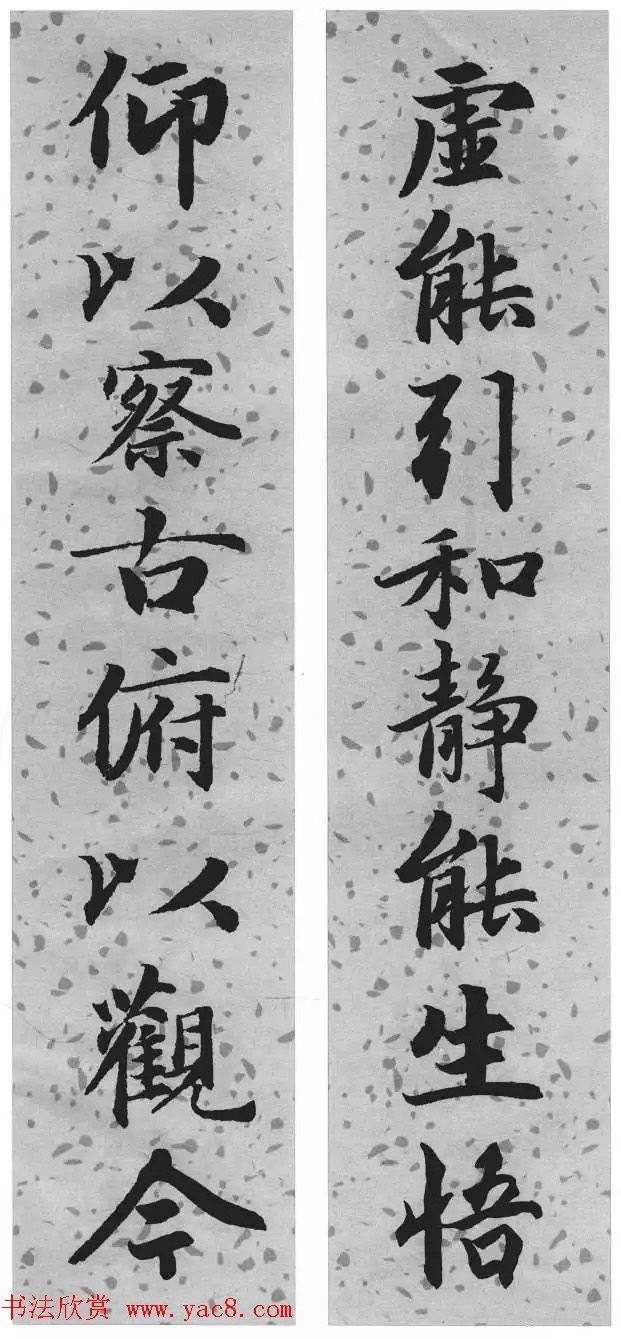 虚能引和静能生悟
仰以察古俯以觀今
书法欣赏 www.yac8.com